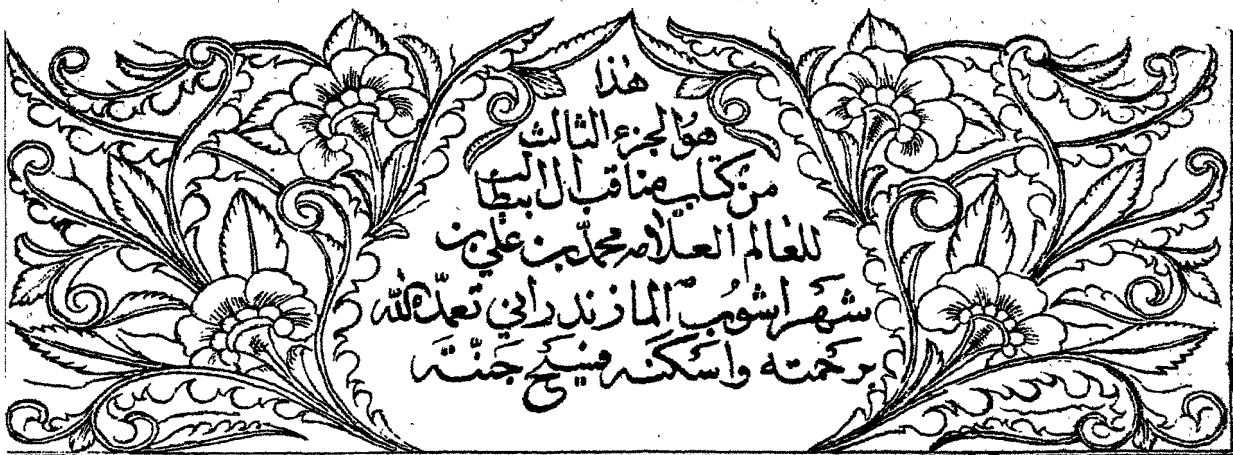 هذا
هو الجزء الثالث
من كتاب مناقب ال ابيطالب
للعالم العلامه محمد بن علي بن
شهر اشوب المازندراني تغمده الله
برحمته واسكنه فسيح جنته